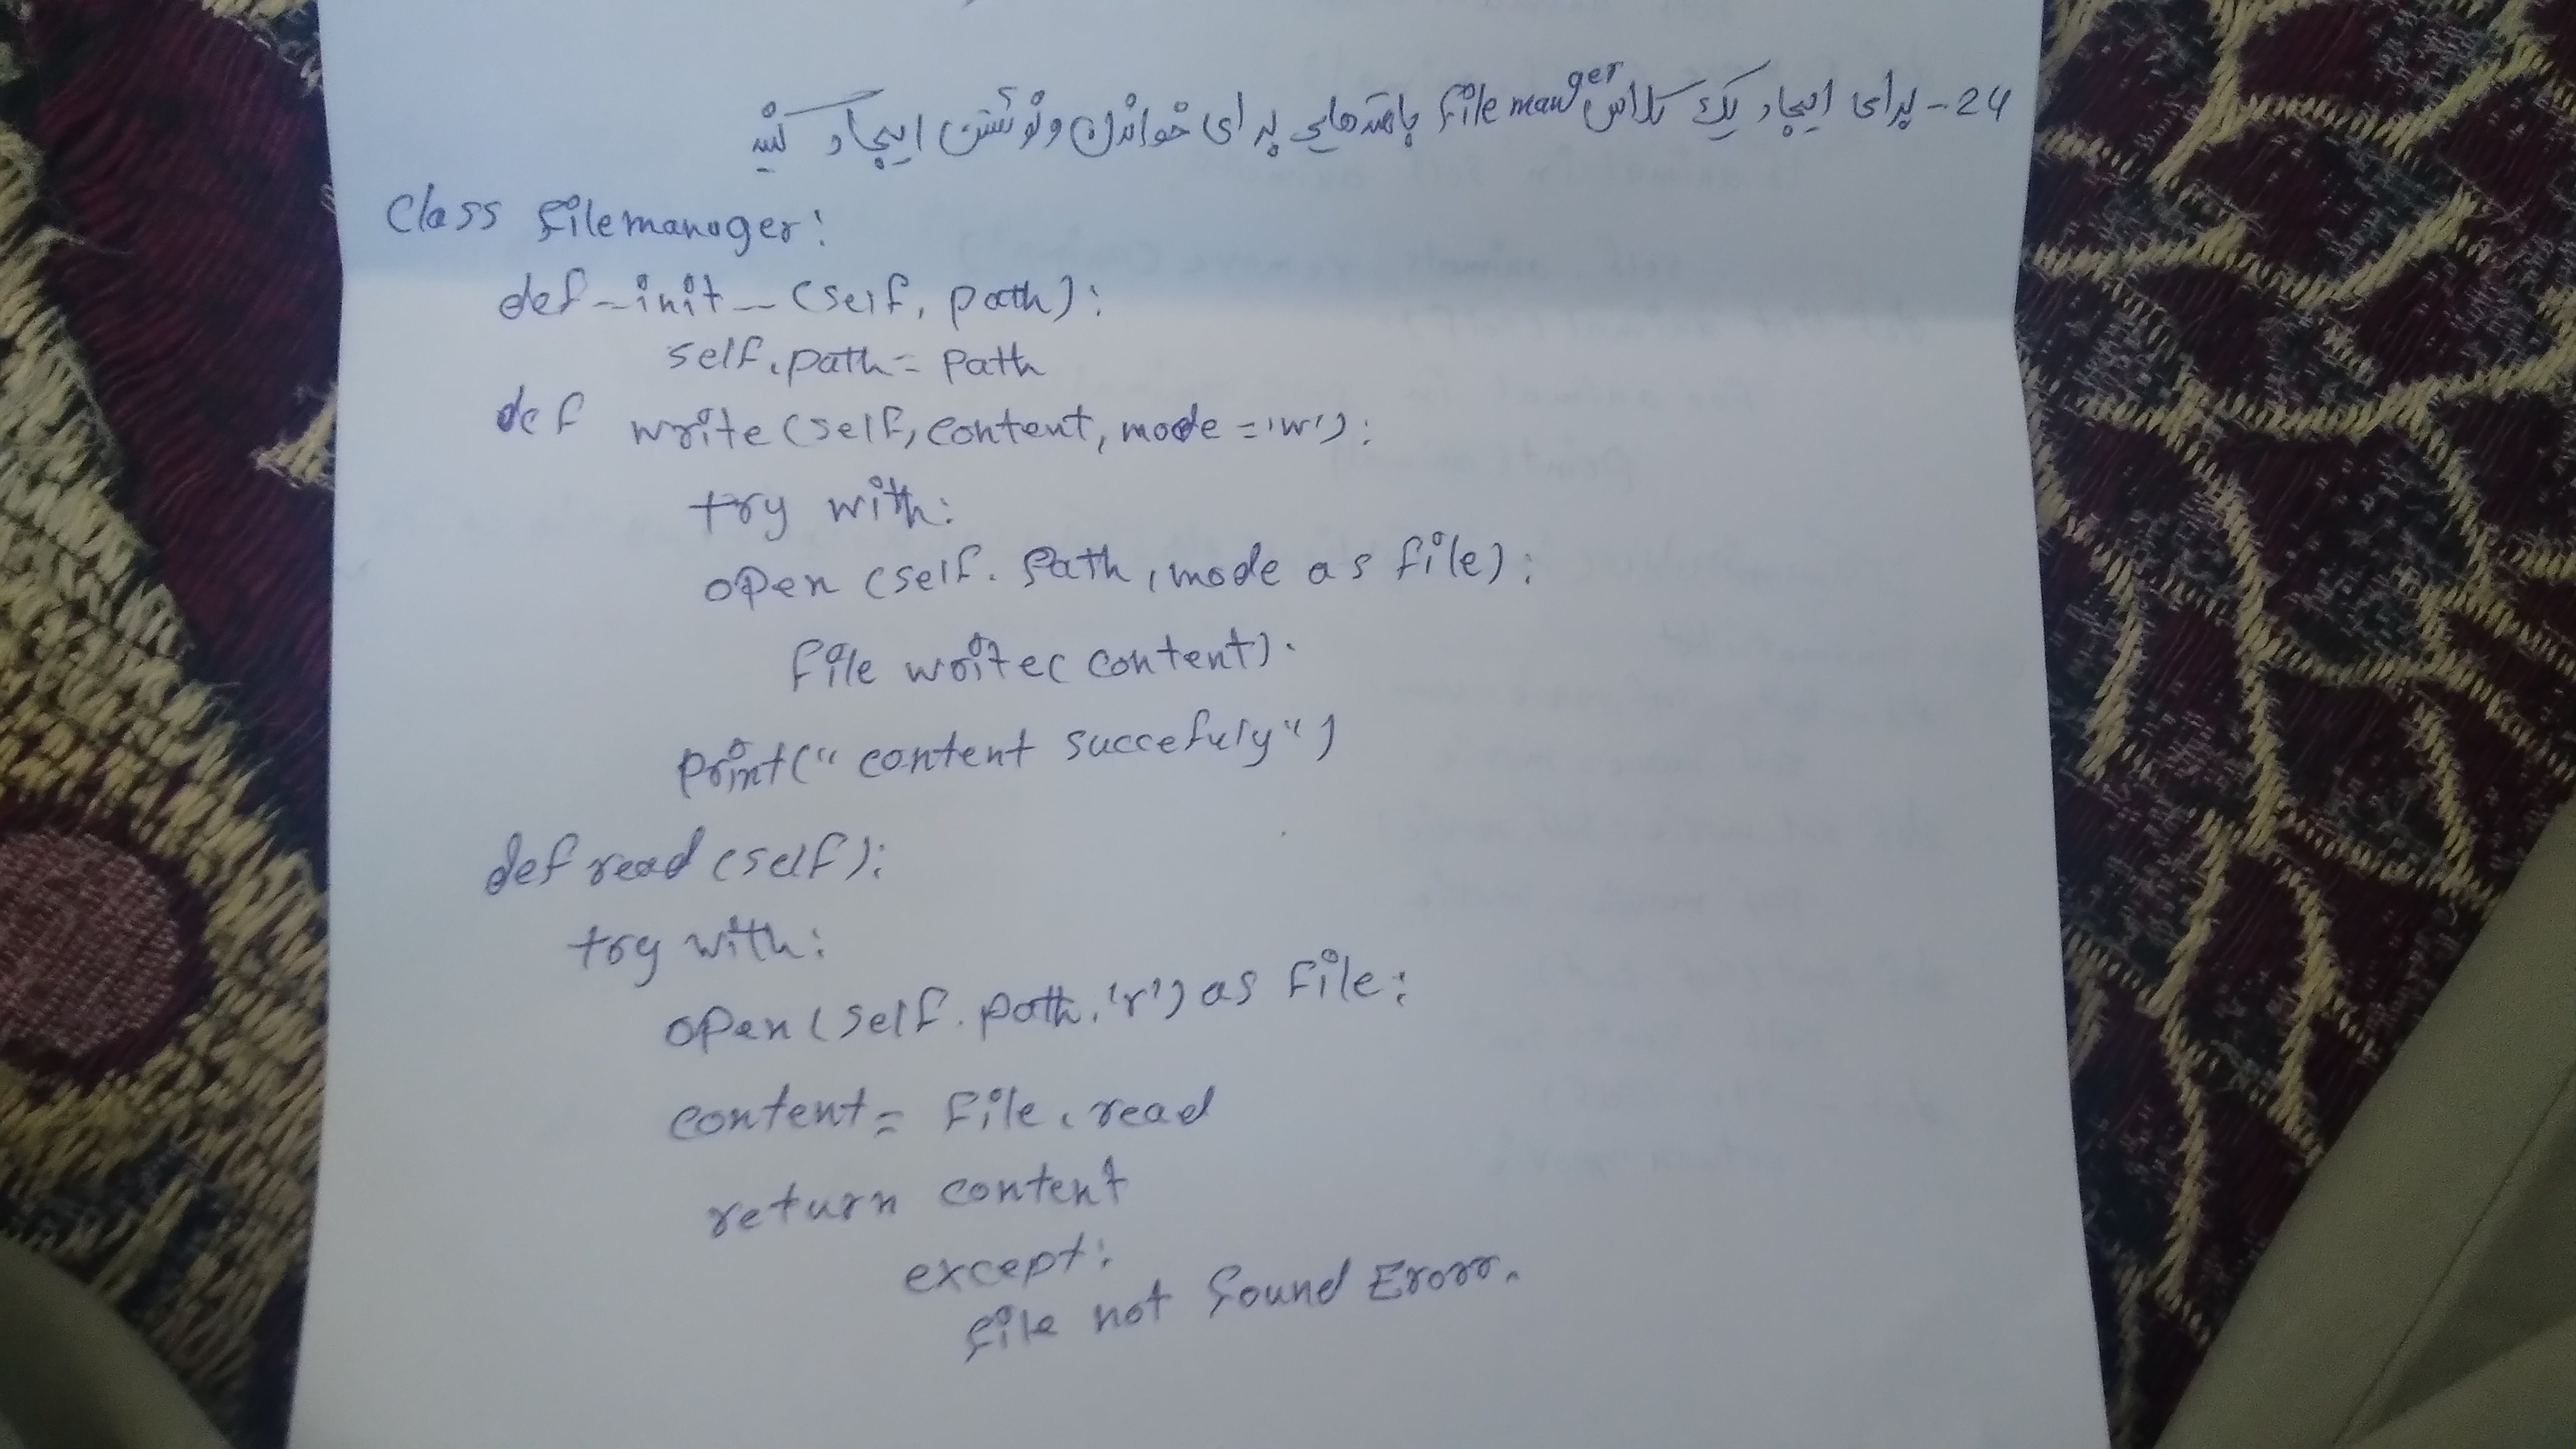 24- برای ایجاد یک کلاس filemanger برای خواندن و نوشتن ایجاد کنید
class filemanager:
def __init__(self, path):
self.path = path
def write(self, content, mode='w'):
try with:
open (self.path, mode as file):
file write(content).
print("content succefuly")
def read(self):
try with:
open(self.path.'r') as file:
content = file.read
return content
except:
file not found Erorr.